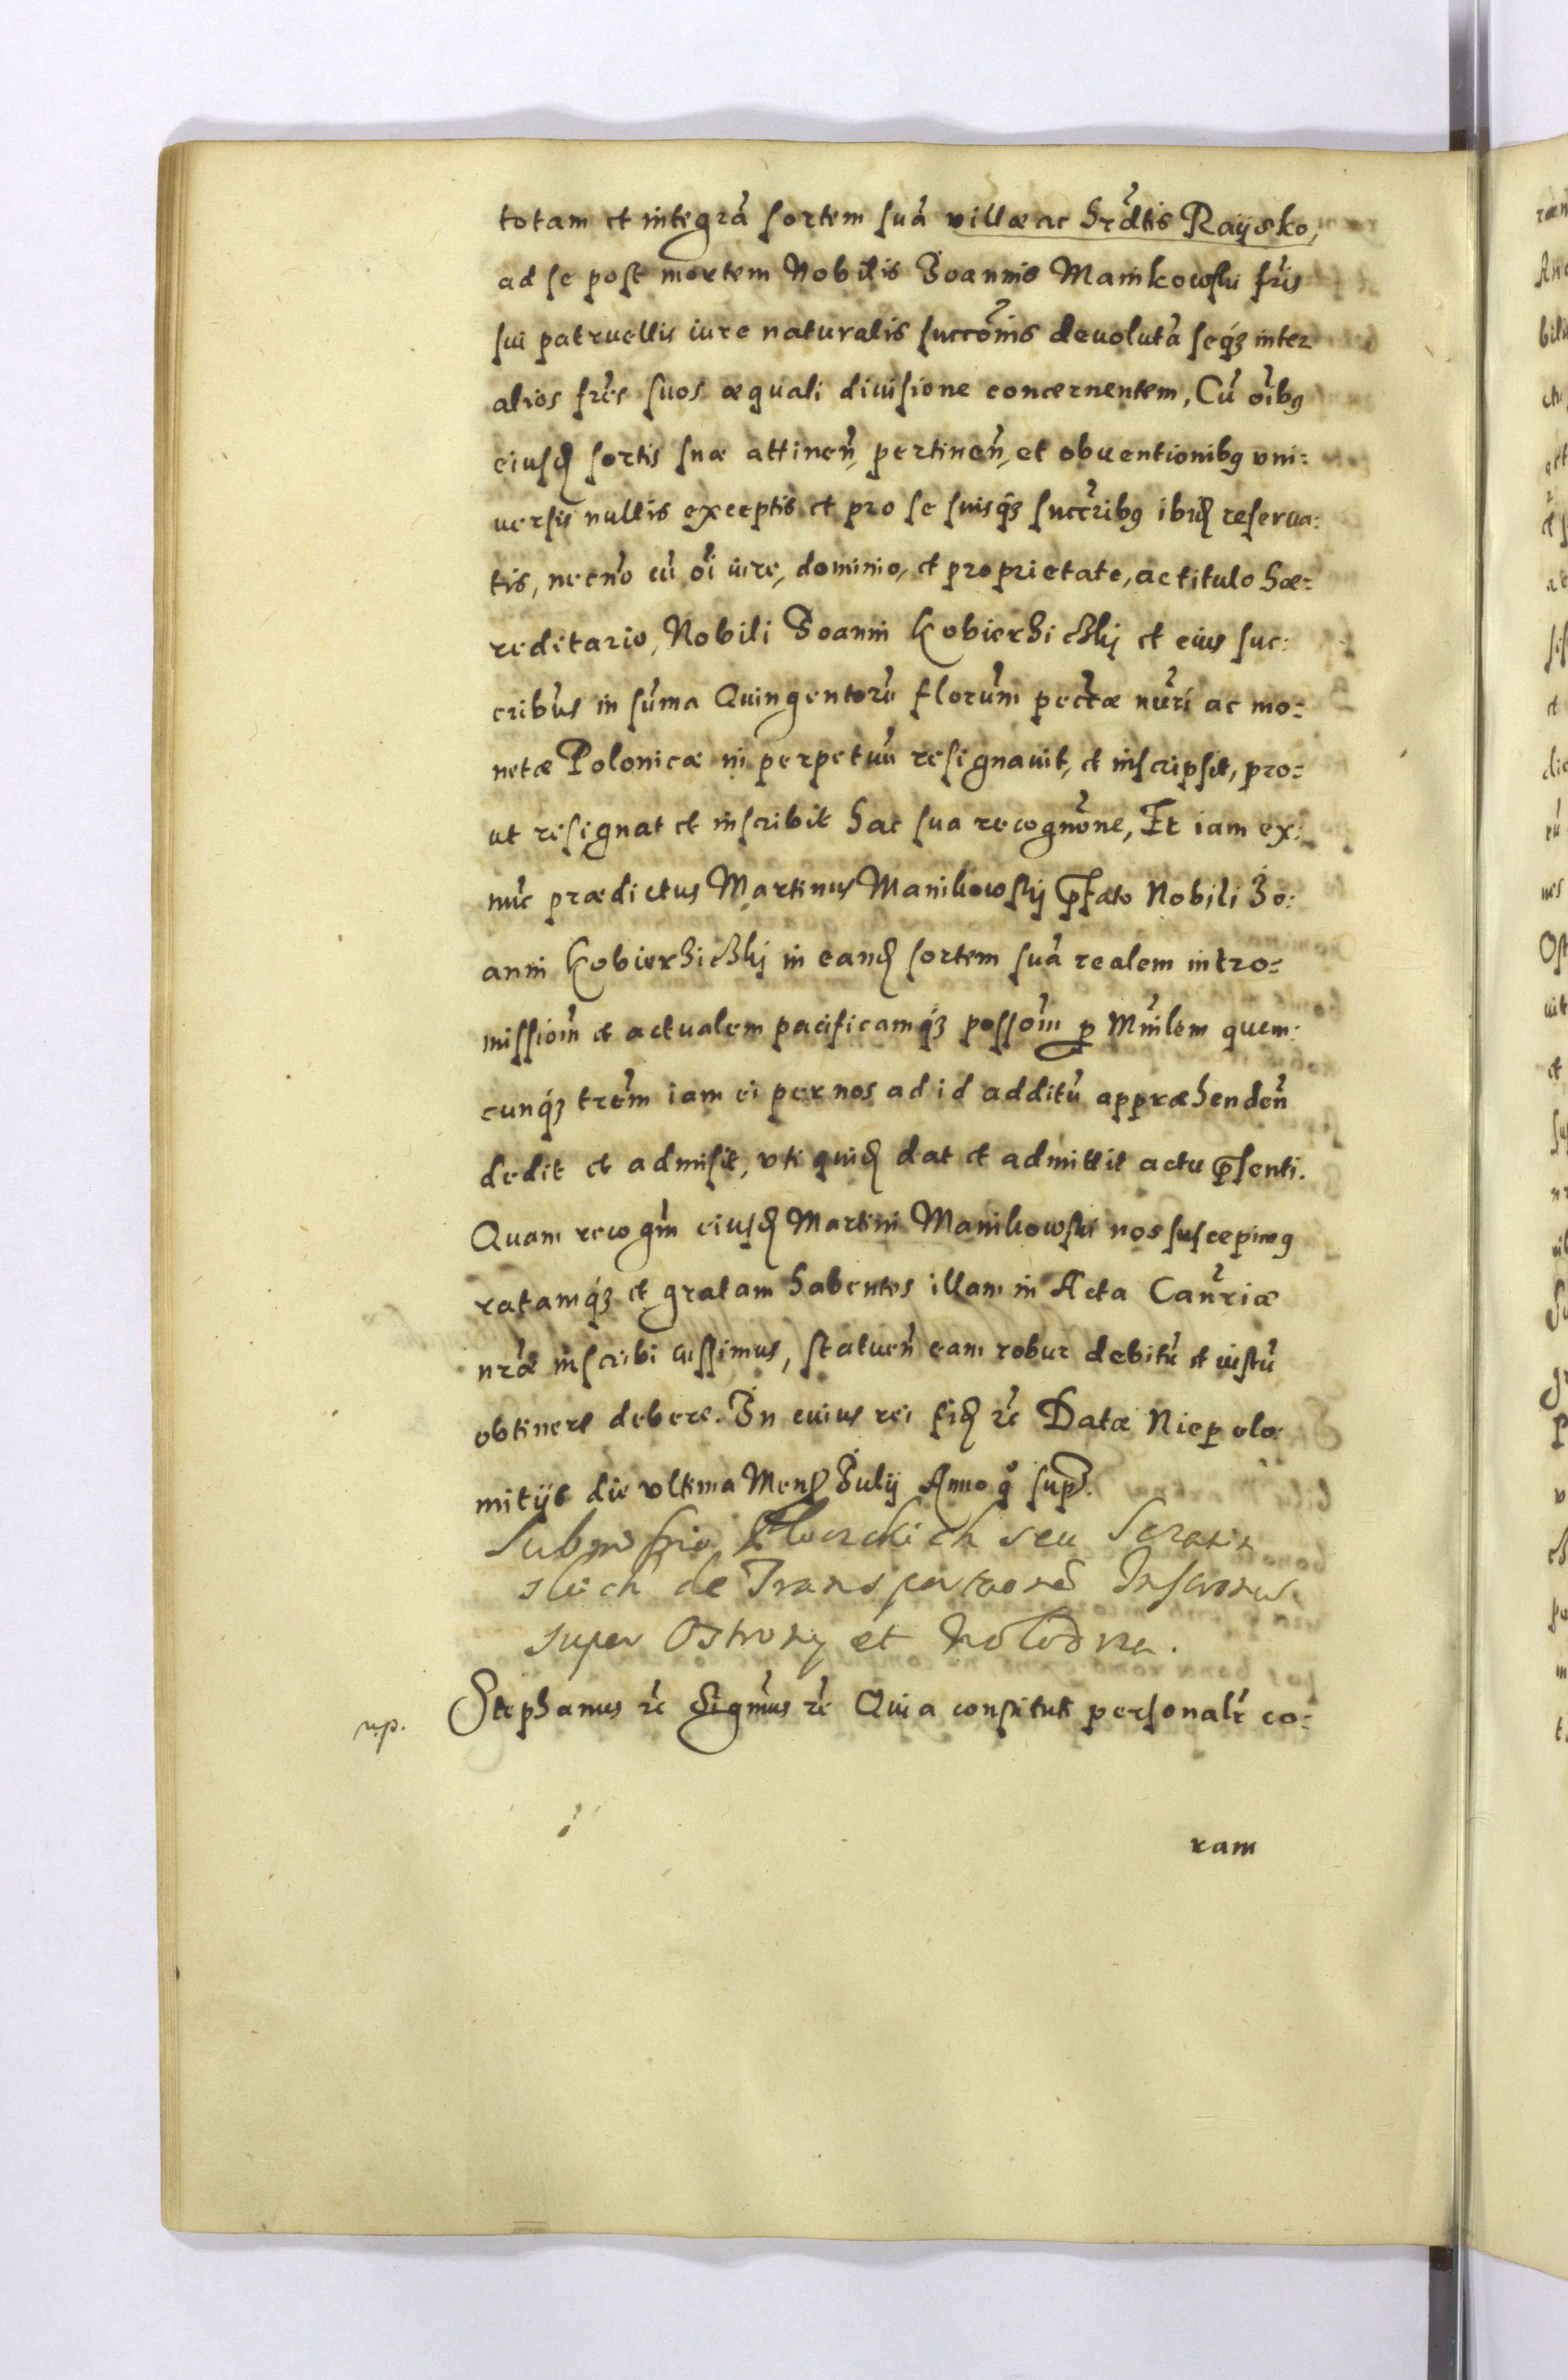 totam et integrã sortem suã villæ ac hrdtis Raysko,
ad se post mortem Nobilis Joannis Mankowski fris
sui patruellis iure naturalis succõnis devolutã seqz inter
alios fres suos æquali divisione concernentem, Cũ oibꝰ
eiusd sortis suæ attinen, pertinen, et obventionibꝰ vni:
versis nullis exceptis et pro se suisqz succribꝰ ibid reserva:
tis, necno cũ oi iure, dominio, et proprietate, ac titulo hæ:
reditario, Nobili Joanni Kobierzickj et eius suc:
cribus in suma Quingentorũ florum pectæ nuri ac mo:
netæ Polonicæ in perpetuũ resignavit, et inscripsit, pro:
ut resignat et inscribit hac sua recognõne, Et iam ex
nũc prædictus Martinus Manikowskij pfato Nobili Jo:
anni Kobierzickj in eand sortem suã realem intro:
missiom et actualem pacificamqz possõm p Mnilem quem:
cunqz trem iam ei per nos ad id additũ appræhenden
dedit et admisit, vti quid dat et admittit actu psenti.
Quam recogm eiusd Martini Manikowski nos suscepimꝰ
ratamqz et gratam habentes illam in Acta Canriæ
nræ inscribi iussimus, statuen eam robur debitũ et iustũ
obtinere debere. In cuius rei fid rc Datæ Niepolo
mitijs die vltima Mens Julij Anno qo sup.
seu
de Transportaone
super et
Stephanus rc Sigmus rc Quia constituti personalr co:
np.
ram